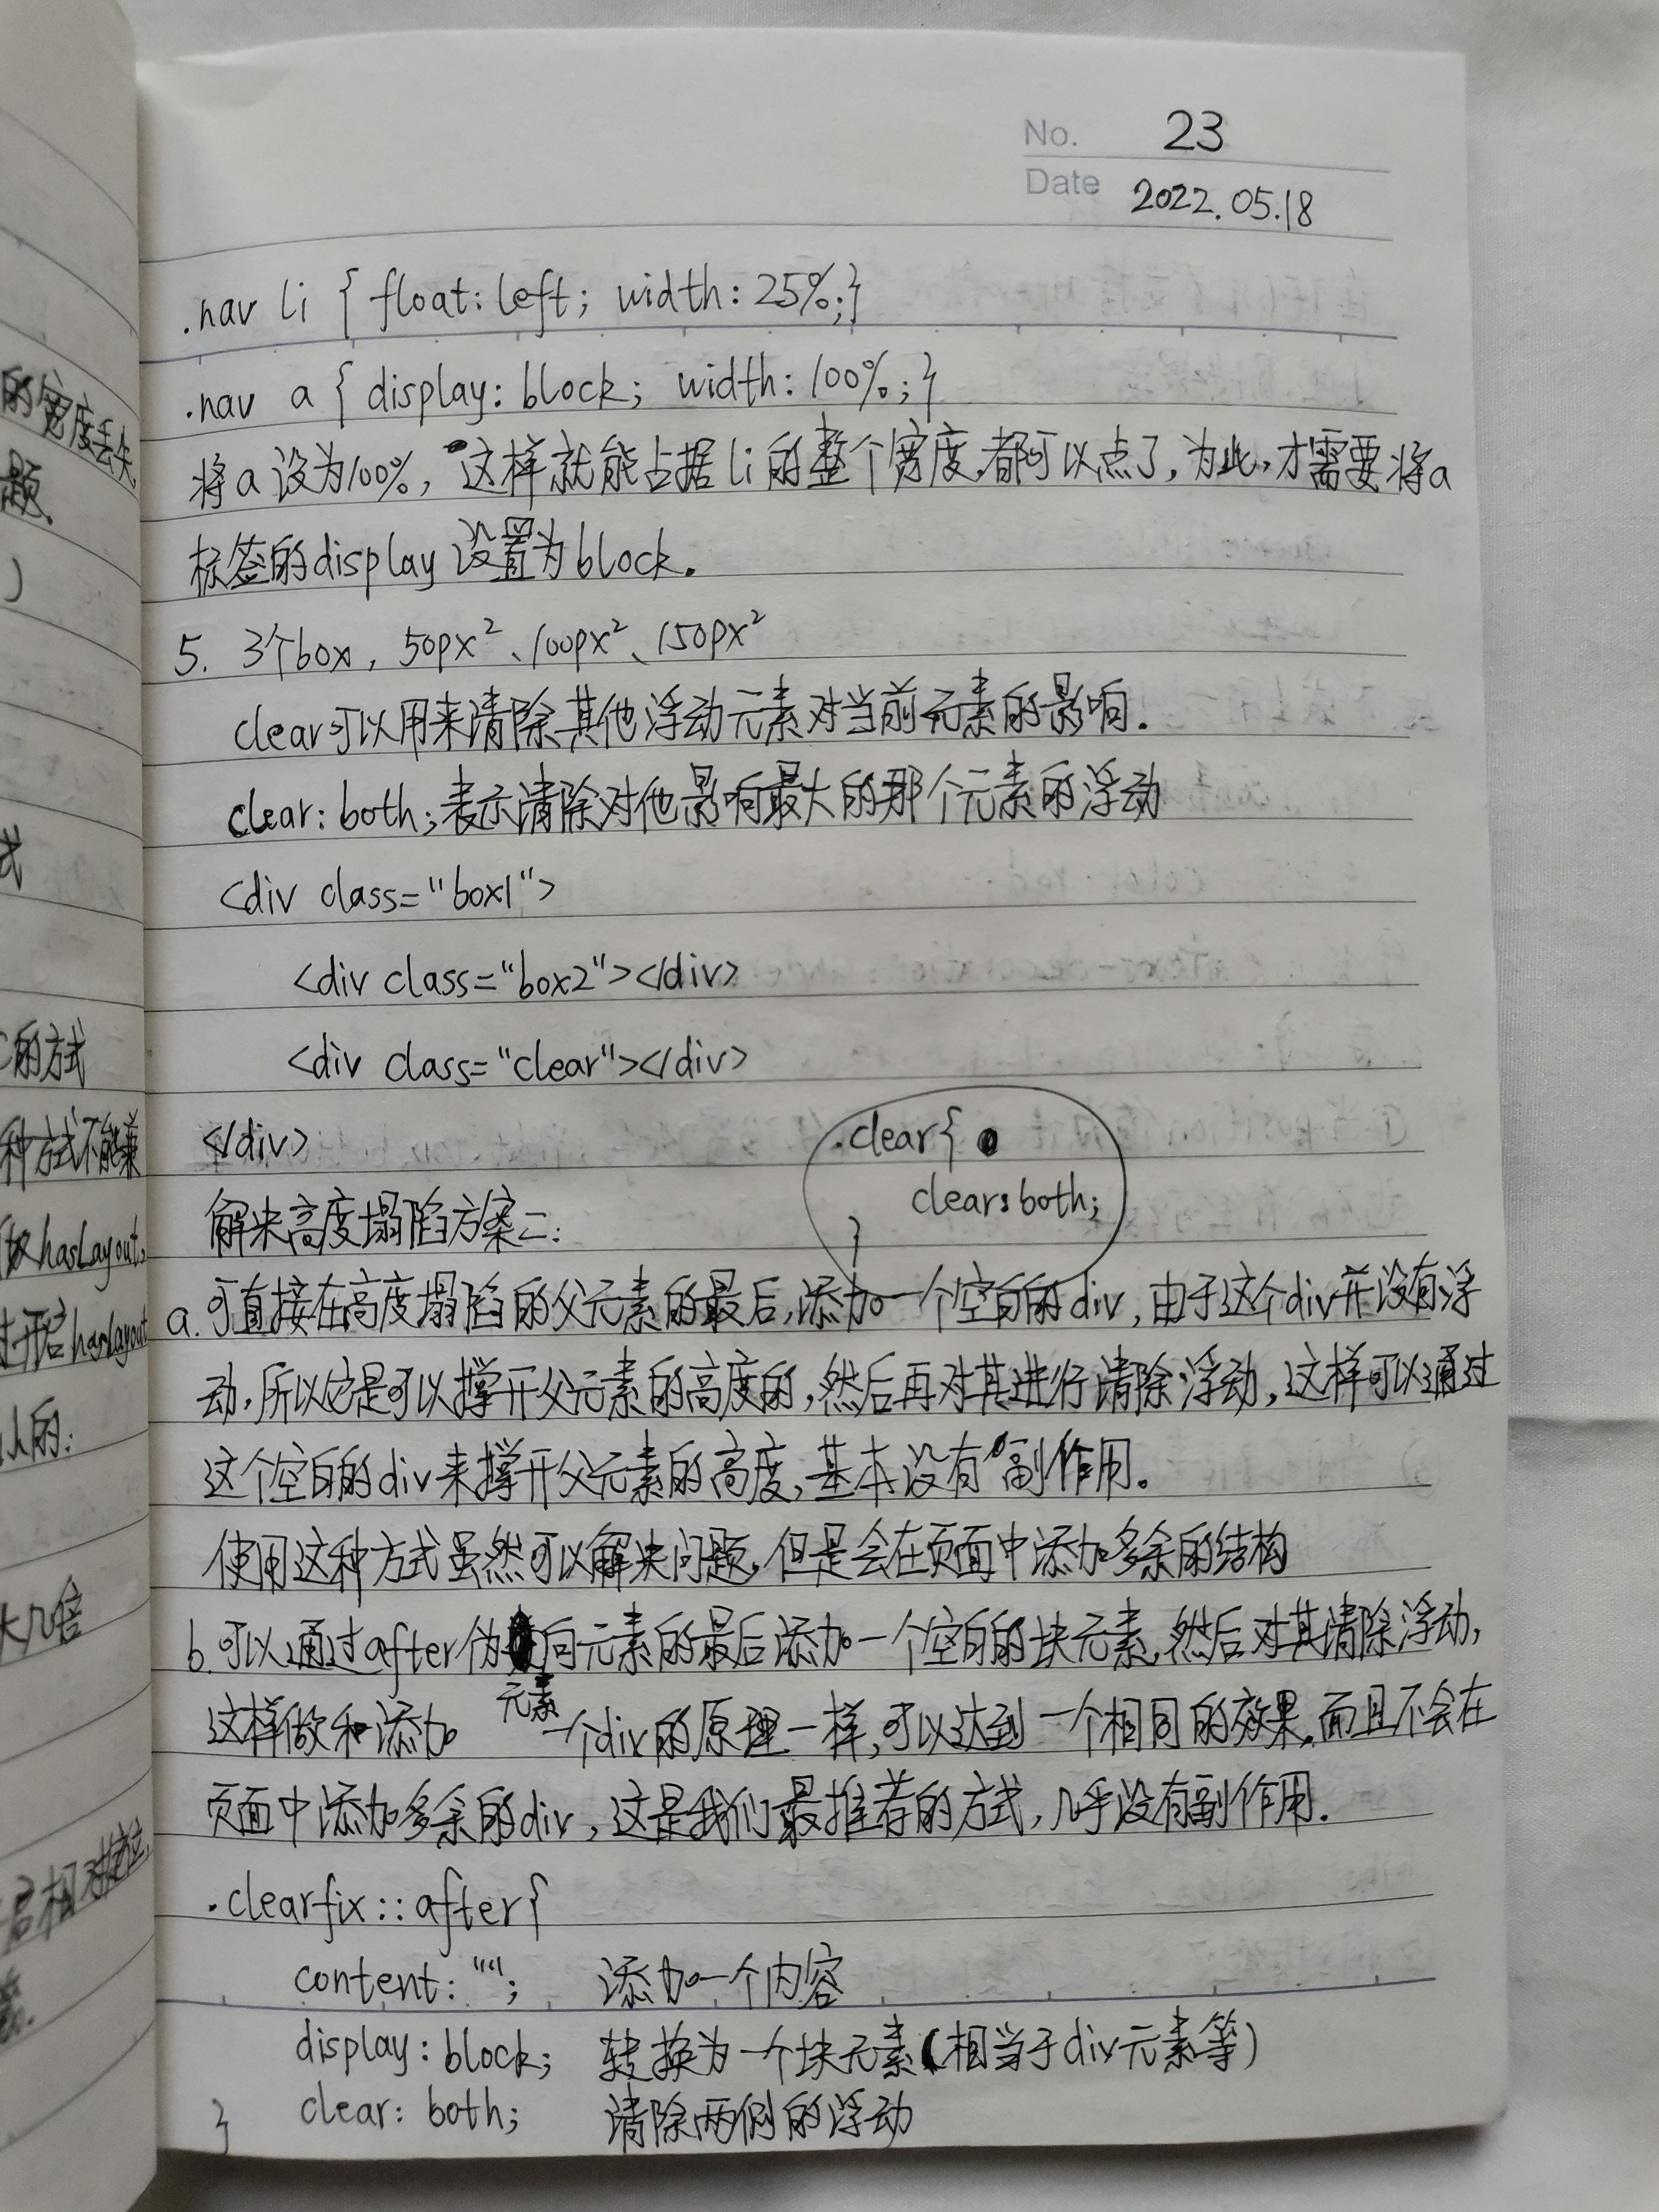 No. 23
Date 2022.05.18
.nav li { float: left; width: 25%;}
.nav a { display: block; width: 100%;}
将a设为100%, 这样就能占据li的整个宽度,都可以点了,为此,才需要将a
标签的display设置为block.
5. 3个box, 50px²、100px²、150px²
clear可以用来清除其他浮动元素对当前元素的影响.
clear: both;表示清除对他影响最大的那个元素的浮动
<div class="box1">
<div class="box2"></div>
<div class="clear"></div>
</div>
.clear{
clear: both;
}
解决高度塌陷方案二:
a. 可直接在高度塌陷的父元素的最后,添加一个空白的div,由于这个div并没有浮
动,所以它是可以撑开父元素的高度的,然后再对其进行清除浮动,这样可以通过
这个空白的div来撑开父元素的高度,基本没有副作用。
使用这种方式虽然可以解决问题,但是会在页面中添加多余的结构
b. 可以通过after伪元素向元素的最后添加一个空白的块元素,然后对其清除浮动,
这样做和添加一个div的原理一样,可以达到一个相同的效果,而且不会在
页面中添加多余的div,这是我们最推荐的方式,几乎没有副作用.
.clearfix::after{
content: ""; 添加一个内容
display: block; 转换为一个块元素(相当于div元素等)
clear: both; 清除两侧的浮动
}
的宽度丢失
题.
)
式
的方式
种方式不能兼
hasLayout,
开启hasLayout
的:
大几倍